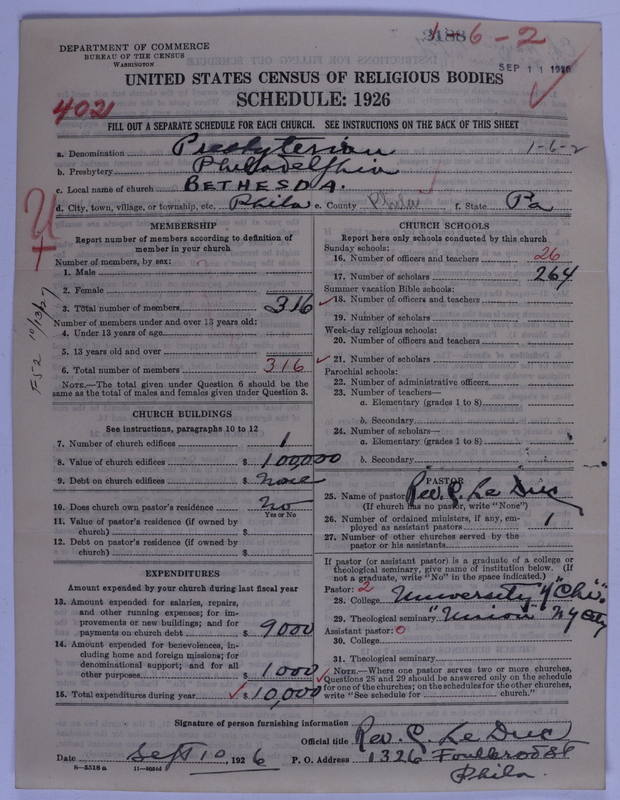 DEPARTMENT OF COMMERCE
BUREAU OF THE CENSUS
WASHINGTON
3188
1-6-2
SEP 11 1926
UNITED STATES CENSUS OF RELIGIOUS BODIES
SCHEDULE: 1926
4021
FILL OUT A SEPARATE SCHEDULE FOR EACH CHURCH. SEE INSTRUCTIONS ON THE BACK OF THIS SHEET
a. Denomination Presbyterian 1-6-2
b. Presbytery Philadelphia
c. Local name of church BETHESDA.
d. City, town, village, or township, etc. Phila e. County Phila f. State Pa
U
F52 10/13/27
MEMBERSHIP
Report number of members according to definition of
member in your church
Number of members, by sex:
1. Male
2. Female
3. Total number of members 316
Number of members under and over 13 years old:
4. Under 13 years of age
5. 13 years old and over
6. Total number of members 316
NOTE.—The total given under Question 6 should be the
same as the total of males and females given under Question 3.
CHURCH BUILDINGS
See instructions, paragraphs 10 to 12
7. Number of church edifices 1
8. Value of church edifices $ 100,000
9. Debt on church edifices $ None
10. Does church own pastor's residence No
Yes or No
11. Value of pastor's residence (if owned by
church) $
12. Debt on pastor's residence (if owned by
church) $
EXPENDITURES
Amount expended by your church during last fiscal year
13. Amount expended for salaries, repairs,
and other running expenses; for im-
provements or new buildings; and for
payments on church debt $ 9000
14. Amount expended for benevolences, in-
cluding home and foreign missions; for
denominational support; and for all
other purposes $ 1000
15. Total expenditures during year $ 10,000
CHURCH SCHOOLS
Report here only schools conducted by this church
Sunday schools:
16. Number of officers and teachers 26
17. Number of scholars 264
Summer vacation Bible schools:
18. Number of officers and teachers
19. Number of scholars
Week-day religious schools:
20. Number of officers and teachers
21. Number of scholars
Parochial schools:
22. Number of administrative officers
23. Number of teachers—
a. Elementary (grades 1 to 8)
b. Secondary
24. Number of scholars—
a. Elementary (grades 1 to 8)
b. Secondary
PASTOR
25. Name of pastor Rev. C. Le Duc
(If church has no pastor, write "None")
26. Number of ordained ministers, if any, em-
ployed as assistant pastors 1
27. Number of other churches served by the
pastor or his assistants
If pastor (or assistant pastor) is a graduate of a college or
theological seminary, give name of institution below. (If
not a graduate, write "No" in the space indicated.)
Pastor: 2
28. College University of "Chi".
29. Theological seminary "Union" N Y City
Assistant pastor: 0
30. College
31. Theological seminary
NOTE.—Where one pastor serves two or more churches,
Questions 28 and 29 should be answered only on the schedule
for one of the churches; on the schedules for the other churches,
write "See schedule for church."
Signature of person furnishing information
Official title Rev. C. Le Duc
Date Sept 10, 1926 P. O. Address 1326 Foulkrod St
Phila.
8—5518a 11—9054d